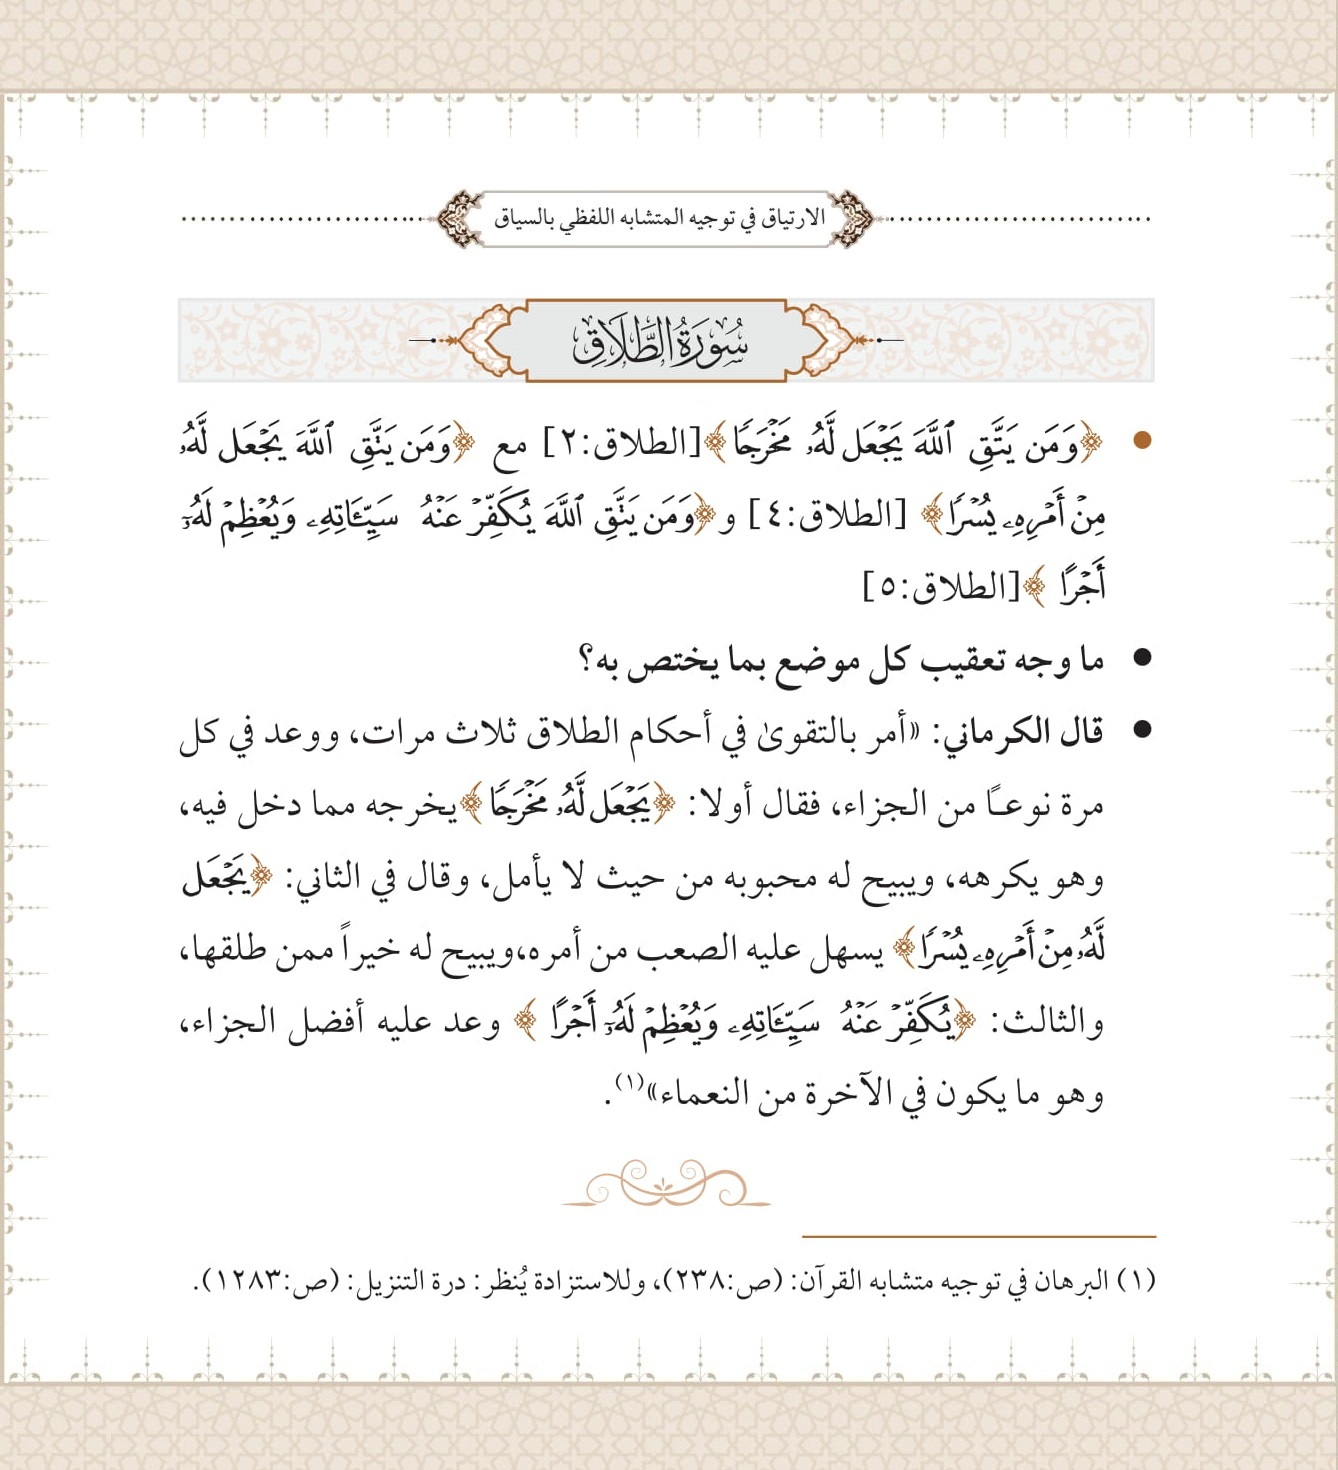 الارتياق في توجيه المتشابه اللفظي بالسياق
سُورَةُ الطَّلَاقِ
• ﴿وَمَن يَتَّقِ ٱللَّهَ يَجۡعَل لَّهُۥ مَخۡرَجٗا﴾[الطلاق:٢] مع ﴿وَمَن يَتَّقِ ٱللَّهَ يَجۡعَل لَّهُۥ
مِنۡ أَمۡرِهِۦ يُسۡرٗا﴾ [الطلاق:٤] و﴿وَمَن يَتَّقِ ٱللَّهَ يُكَفِّرۡ عَنۡهُ سَيِّـَٔاتِهِۦ وَيُعۡظِمۡ لَهُۥٓ
أَجۡرًا ﴾[الطلاق:٥]
• ما وجه تعقيب كل موضع بما يختص به؟
• قال الكرماني: «أمر بالتقوىٰ في أحكام الطلاق ثلاث مرات، ووعد في كل
مرة نوعـًا من الجزاء، فقال أولا: ﴿يَجۡعَل لَّهُۥ مَخۡرَجٗا﴾يخرجه مما دخل فيه،
وهو يكرهه، ويبيح له محبوبه من حيث لا يأمل، وقال في الثاني: ﴿يَجۡعَل
لَّهُۥ مِنۡ أَمۡرِهِۦ يُسۡرٗا﴾ يسهل عليه الصعب من أمره،ويبيح له خيراً ممن طلقها،
والثالث: ﴿يُكَفِّرۡ عَنۡهُ سَيِّـَٔاتِهِۦ وَيُعۡظِمۡ لَهُۥٓ أَجۡرًا ﴾ وعد عليه أفضل الجزاء،
وهو ما يكون في الآخرة من النعماء»(١).
(١) البرهان في توجيه متشابه القرآن: (ص:٢٣٨)، وللاستزادة يُنظر: درة التنزيل: (ص:١٢٨٣).